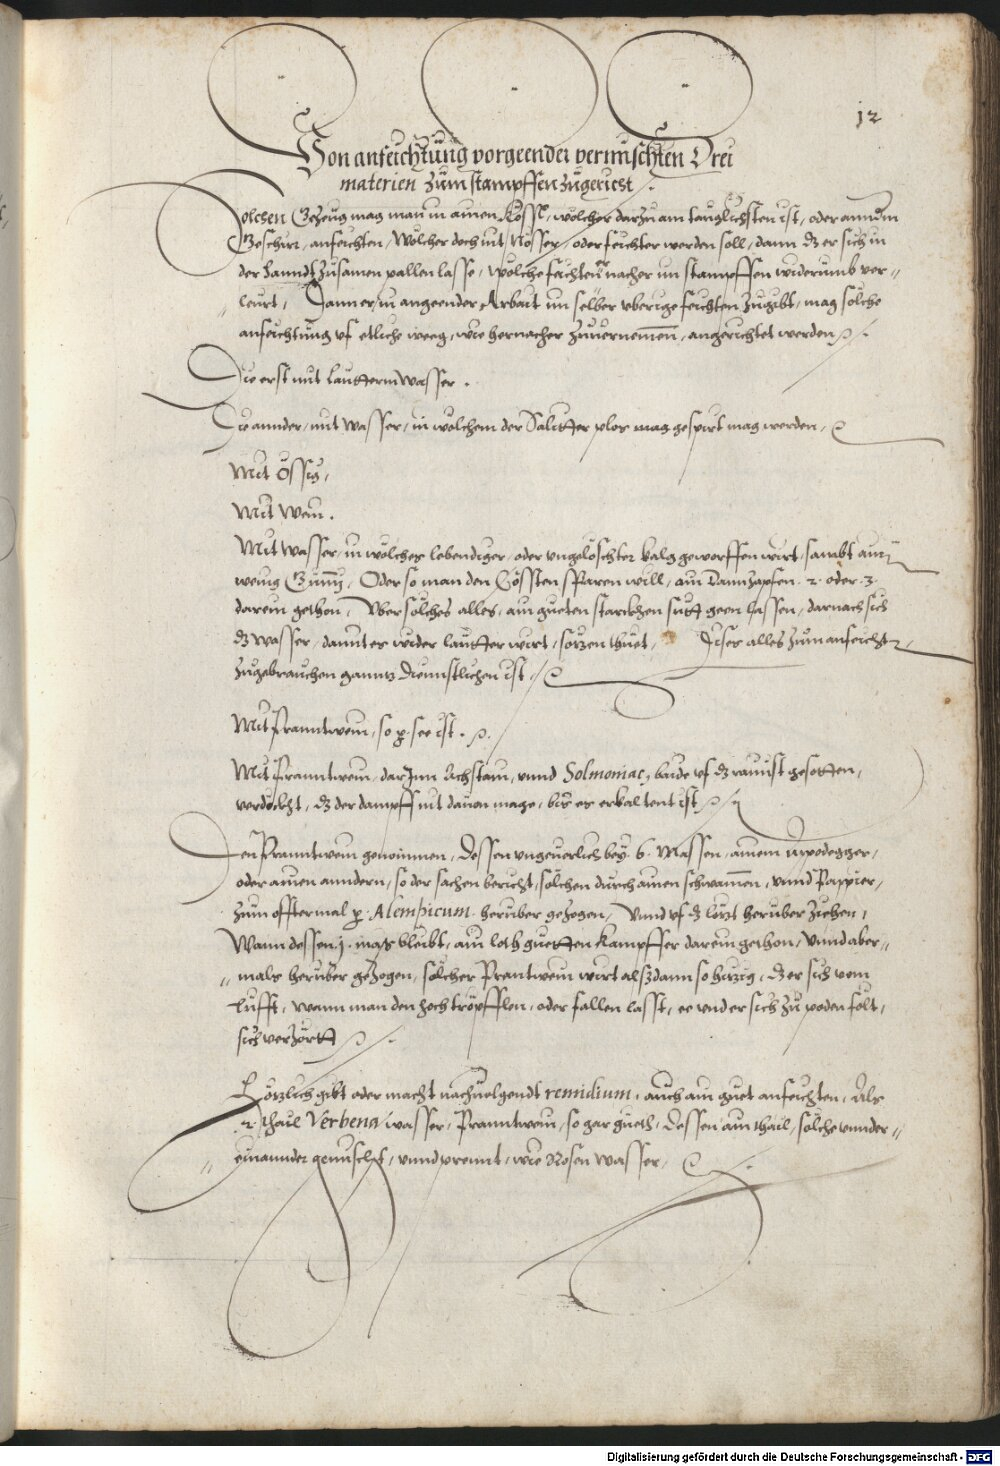 12
Von anfeichtung vorgeender vermischten Drei
materien zum stampffen zugericht
Solchen Gezeug mag man in ainen Kössl, wölcher darzu am tauglichsten ist, oder ann dern
Geschirr, anfeichten, Wölcher doch nit Nösser, oder feichter werden soll, dann dz er sich in
der hanndt zusamen pallen lasse, wölche feichten er nacher im stampffen widerumb ver-
leurt, Dann er, in angeender Arbait im selber uberige feichten zugibt, mag solche
anfeichtung uf etliche weeg, wie hernacher zuvernemen, angerichtet werden
Die erst mit lautterm Wasser.
Die annder, mit Wasser, in wölchem der Salitter plos mag gespirt mag werden,
Mit Össig,
Mit Wein.
Mit Wasser, in wölches lebendiger, oder ungelöschter kalg geworffen wirt, sambt ain
wenig Gumj, Oder so man den Cössten sparen will, ain Dannzapfen 2. oder 3.
darein gethon, Uber solches alles, ain gueten starckhen sutt geen lassen, darnach sich
dz Wasser, damit es wider lautter wirt, sötzen thuet, Dises alles zum anfeichten
zugebrauchen ganntz dienstlichen ist
Mit Pranntwein, so p. see ist.
Mit Pranntwein, darinn Achstain, unnd Solmoniac, baide uf dz rainist gesotten,
verdöckht, dz der dampff nit davon mage, bis es erkaltent ist
Den Pranntwein genommen, Dessen ungeverlich bey 6. Massen, ainem Appodegger,
oder ainen anndern, so der sachen bericht, solchen durch ainen schwamen, unnd Pappier,
zum offtermal p. Alempicum heruber gezogen, Unnd uf dz lötzt heruber ziehen,
Wann dessen j. mass bleibt, ain loth guetten Kampffer darein gethon, Unnd aber-
mals heruber gezogen, solcher Prantwein wirt alsdann so hitzig, dz er sich vom
Lufft, wann man den hoch tröpfflen, oder fallen lasst, ee und er sich zu poden fölt,
sich verzörtt
Lötzlich gibt oder macht nachvolgendt remidium, auch ain guet anfeichten, Als
2. thail Verbena wasser, Pranntwein, so gar gueth, Dessen ain thail, solche unnder-
einannder gemischt, unnd prennt, wie Rosen wasser,
Digitalisierung gefördert durch die Deutsche Forschungsgemeinschaft - DFG